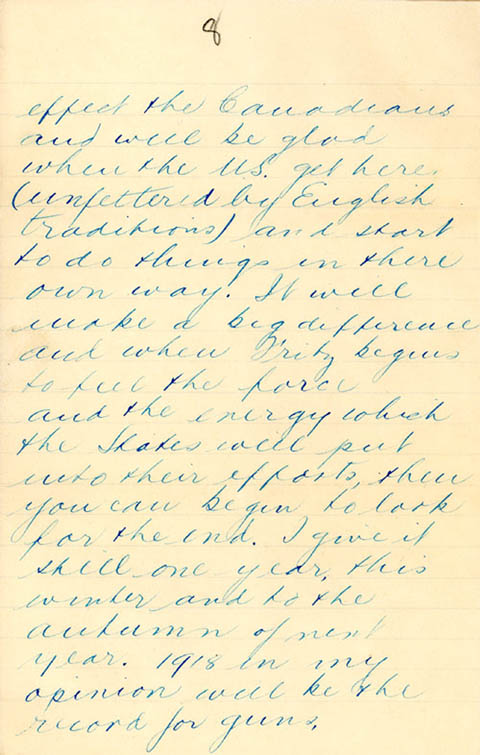 8
effect the Canadians
and will be glad
when the U.S. get here.
(unfettered by English
traditions) and start
to do things in there
own way. It will
make a big difference
and when Fritz begins
to feel the force
and the energy which
the States will put
into their efforts, then
you can begin to look
for the end. I give it
still one year, this
winter and to the
autumn of next
year. 1918 in my
opinion will be the
record for guns.